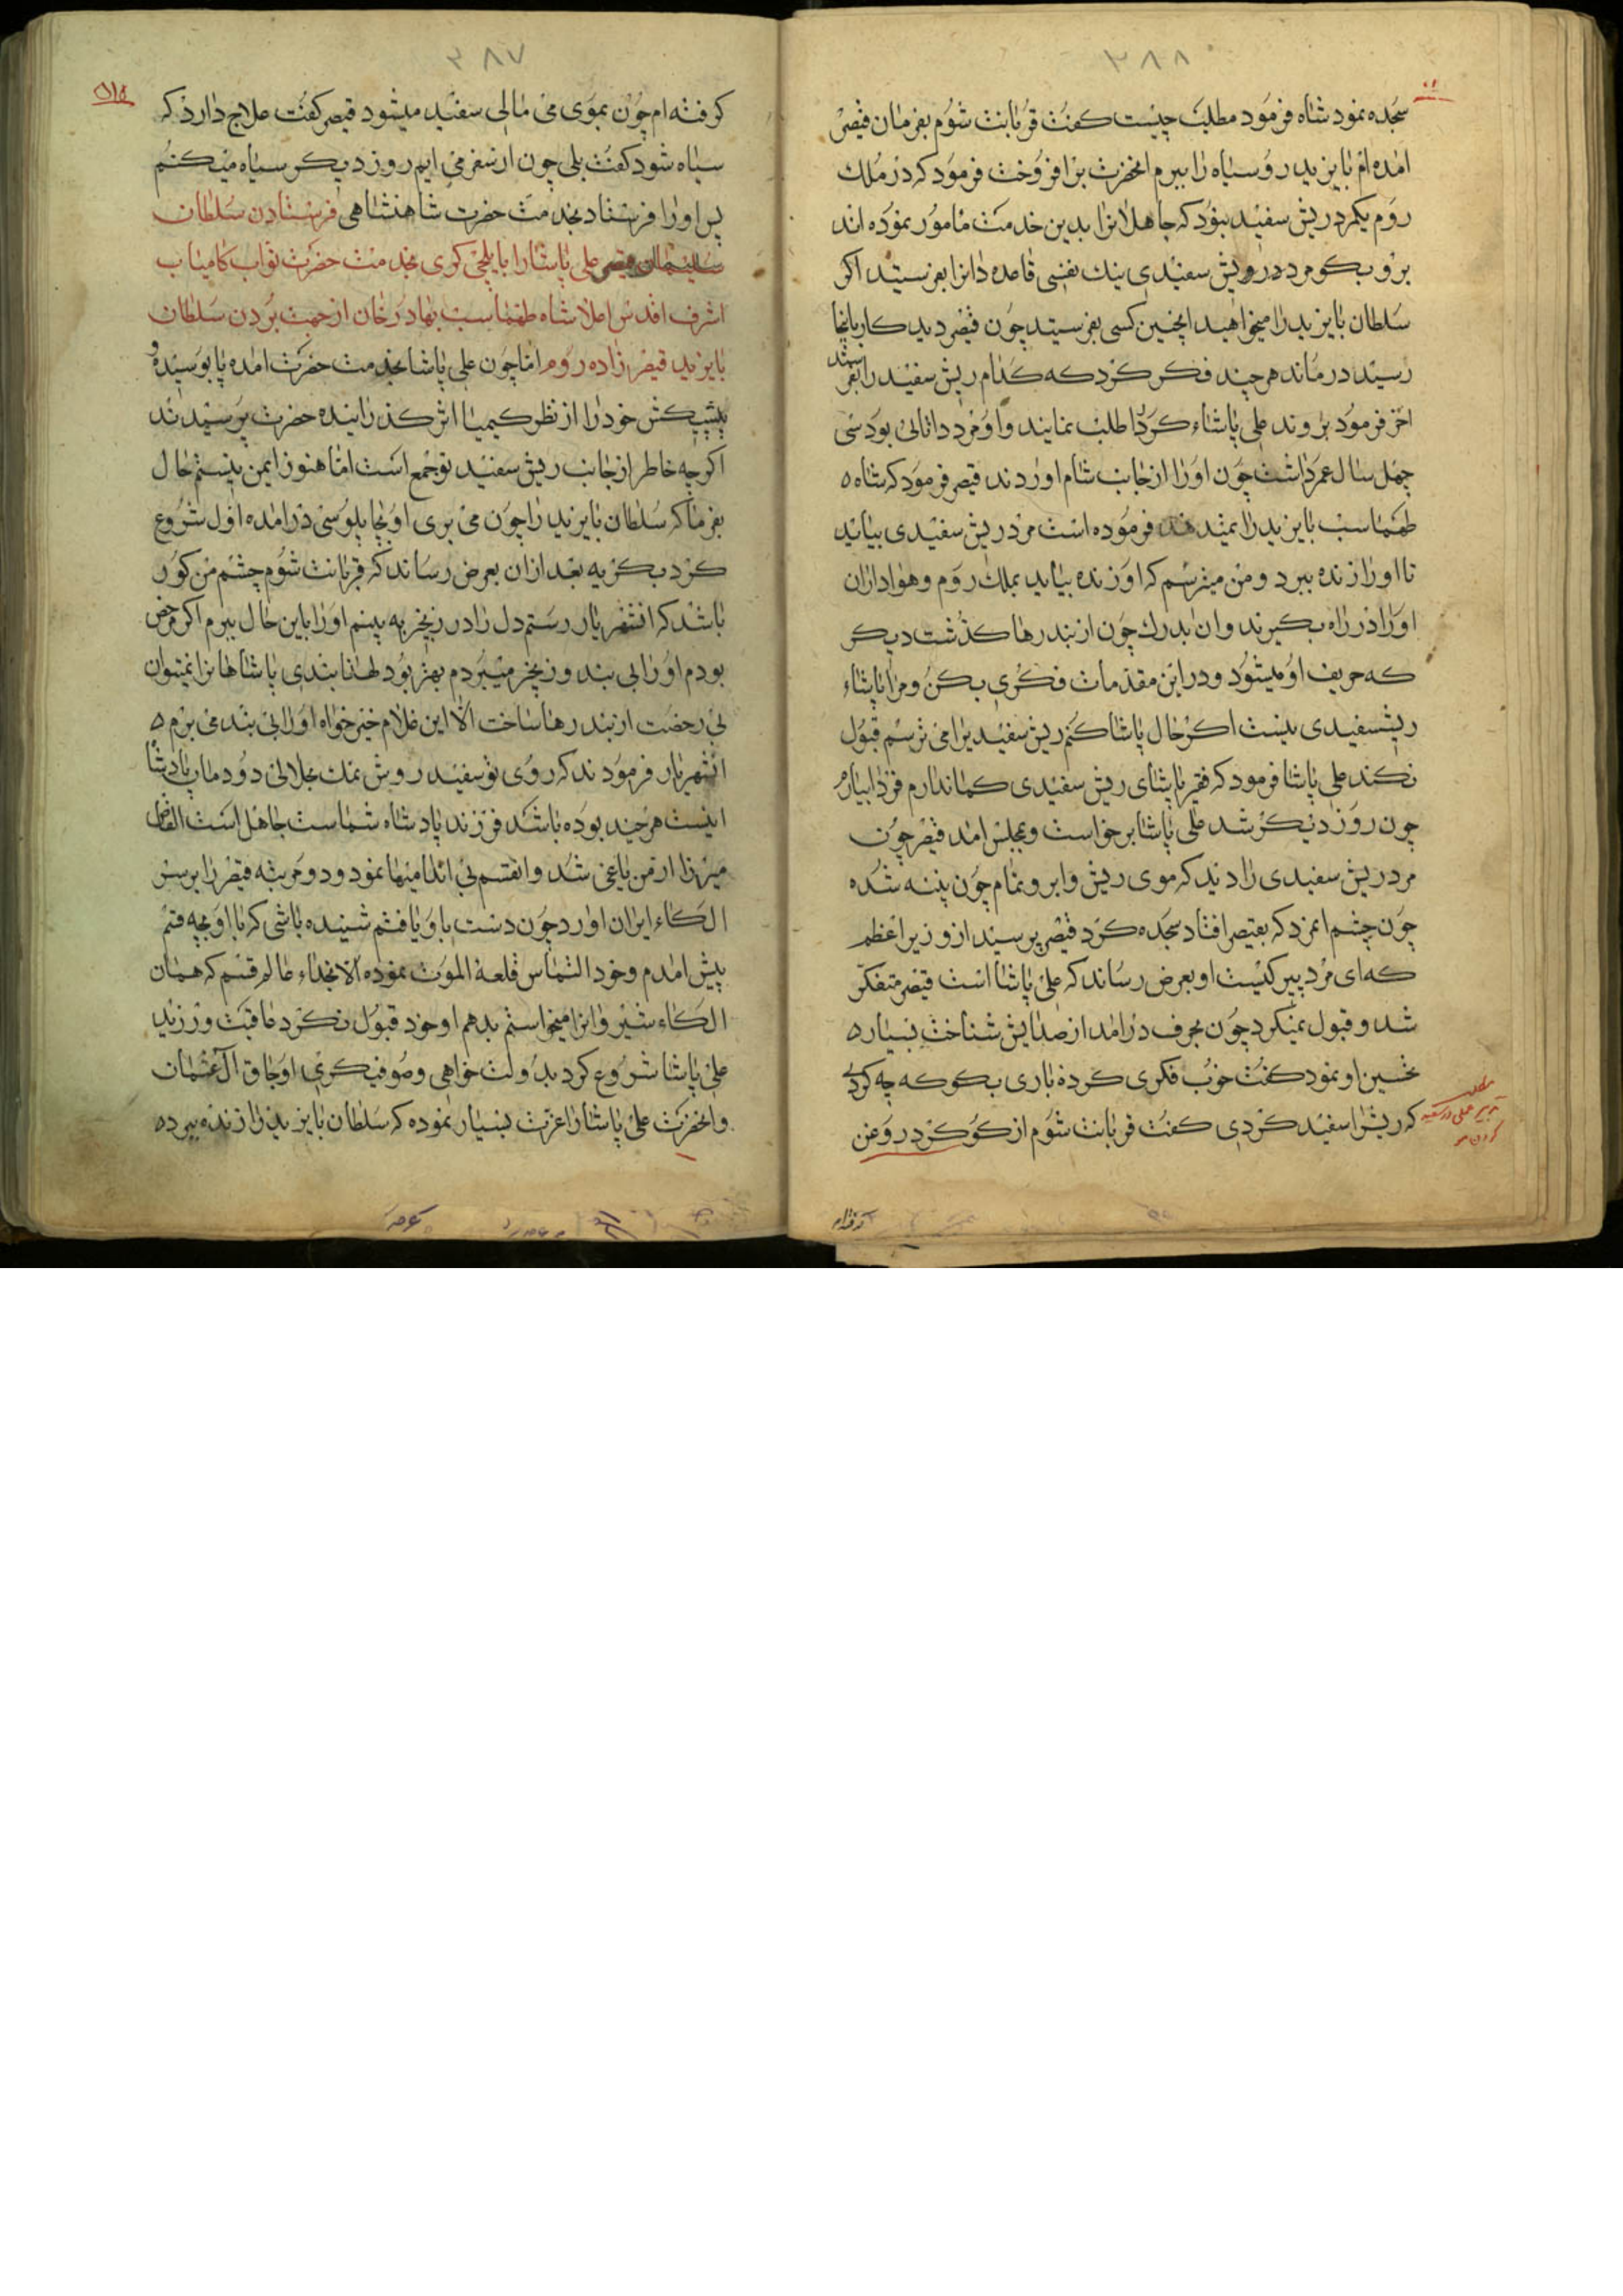 ٣٨٨
سجده نمود شاه فرمود مطلبت چیست کفت قربانت شوم بفرمان قیصر
امده ام بایزید روسیاه را ببرم انحضرت برافروخت فرمود که در ملك
روم یکمرد ریش سفید نبود که جاهلانرا بدین خدمت مامور نموده اند
برو بکو مرد ریش سفیدی نیك نفسی قاعده دانرا بفرستید اکر
سلطان بایزید را میخواهید اینچنین کسی بفرستید چون قیصر دید کار باینجا
رسید درماند هرچند فکر کرد که کدام ریش سفید را بفرستد
اخر فرمود بروند علی پاشاء کرد را طلب نمایند و او مرد دانائی بود سی
چهل سال عمر داشت چون او را از جانب شام اوردند قیصر فرمود که شاه
طهماسب بایزید را نمیدهد فرموده است مرد ریش سفیدی بیاید
تا او را زنده ببرد و من میترسم که او زنده بیاید بملك روم و هواداران
او را در راه بکیرند وان بدرك چون از بندرها کذشت دیکر
که حریف او میشود و در این مقدمات فکری بکن و مرا پاشاء
ریشسفیدی نیست اکر حال پاشا کنم ریش سفید برا می ترسم قبول
نکند علی پاشا فرمود که فقیر پاشای ریش سفیدی کماندارم فردا بیارم
چون روز دیکر شد علی پاشا برخواست و بمجلس امد قیصر چون
مرد ریش سفیدی را دید که موی ریش و ابرو تمام چون پنبه شده
چون چشم انمرد که بقیصر افتاد سجده کرد قیصر پرسید از وزیر اعظم
که ای مرد پیر کیست او بعرض رساند که علی پاشا است قیصر متفکر
شد و قبول نمیکرد چون بحرف درامد از صدایش شناخت بسیار
تحسین او نمود کفت خوب فکری کرده باری بکو که چه کردی
که ریش را سفید کردی کفت قربانت شوم از کوکرد روغن
کرفته ام چون بموی می مالی سفید میشود قیصر کفت علاج دارد که
٣٨٧
سیاه شود کفت بلی چون از سفر می ایم روز دیکر سیاه میکنم
پس او را فرستاد بخدمت حضرت شاهنشاهی فرستادن سلطان
سلیمان قیصر علی پاشا را بایلچی کوی بخدمت حضرت نواب کامیاب
اشرف اقدس اعلا شاه طهماسب بهادر خان از جهت بردن سلطان
بایزید قیصر زاده روم اما چون علی پاشا بخدمت حضرت امده پا بوسیده و
پیشکش خود را از نظر کیمیا اثر کذرانیده حضرت پرسیدند
اکرچه خاطر از جانب ریش سفید تو جمع است اما هنوز ایمن نیستم حال
بفرما که سلطان بایزید را چون می بری او بچاپلوسی درامده اول شروع
کرد بکریه بعد ازان بعرض رساند که قربانت شوم چشم من کور
باشد که انشهریار رستم دل را در زنجیر به بینم او را باین حال ببرم اکر مرخص
بودم او را بی بند و زنجیر میبردم بهتر بود لهذا بندی پاشاهانرا نمیتوان
بی رخصت از بند رها ساخت الا این غلام خیر خواه او را بی بند می برم
انشهریار فرمودند که روی تو سفید روش نمك بحلالی دودمان پادشا
اینست هرچند بوده باشد فرزند پادشاه شماست جاهل است القاص
میرزا از من یاغی شد و انقسم بی اندامیها نمود و دو مرتبه قیصر را برسر
الکاء ایران اورد چون دست باو یافتم شنیده باشی که با او بچه قسم
پیش امدم و خود التماس قلعة الموت نموده الا بخداء عالم قسم که همان
الکاء شیروانرا میخواستم بدهم او خود قبول نکرد عاقبت ورزید
علی پاشا شروع کرد بدولت خواهی و صوفیکری اوجاق آل عثمان
وانحضرت علی پاشا را عزت بسیار نموده که سلطان بایزید را زنده ببرد